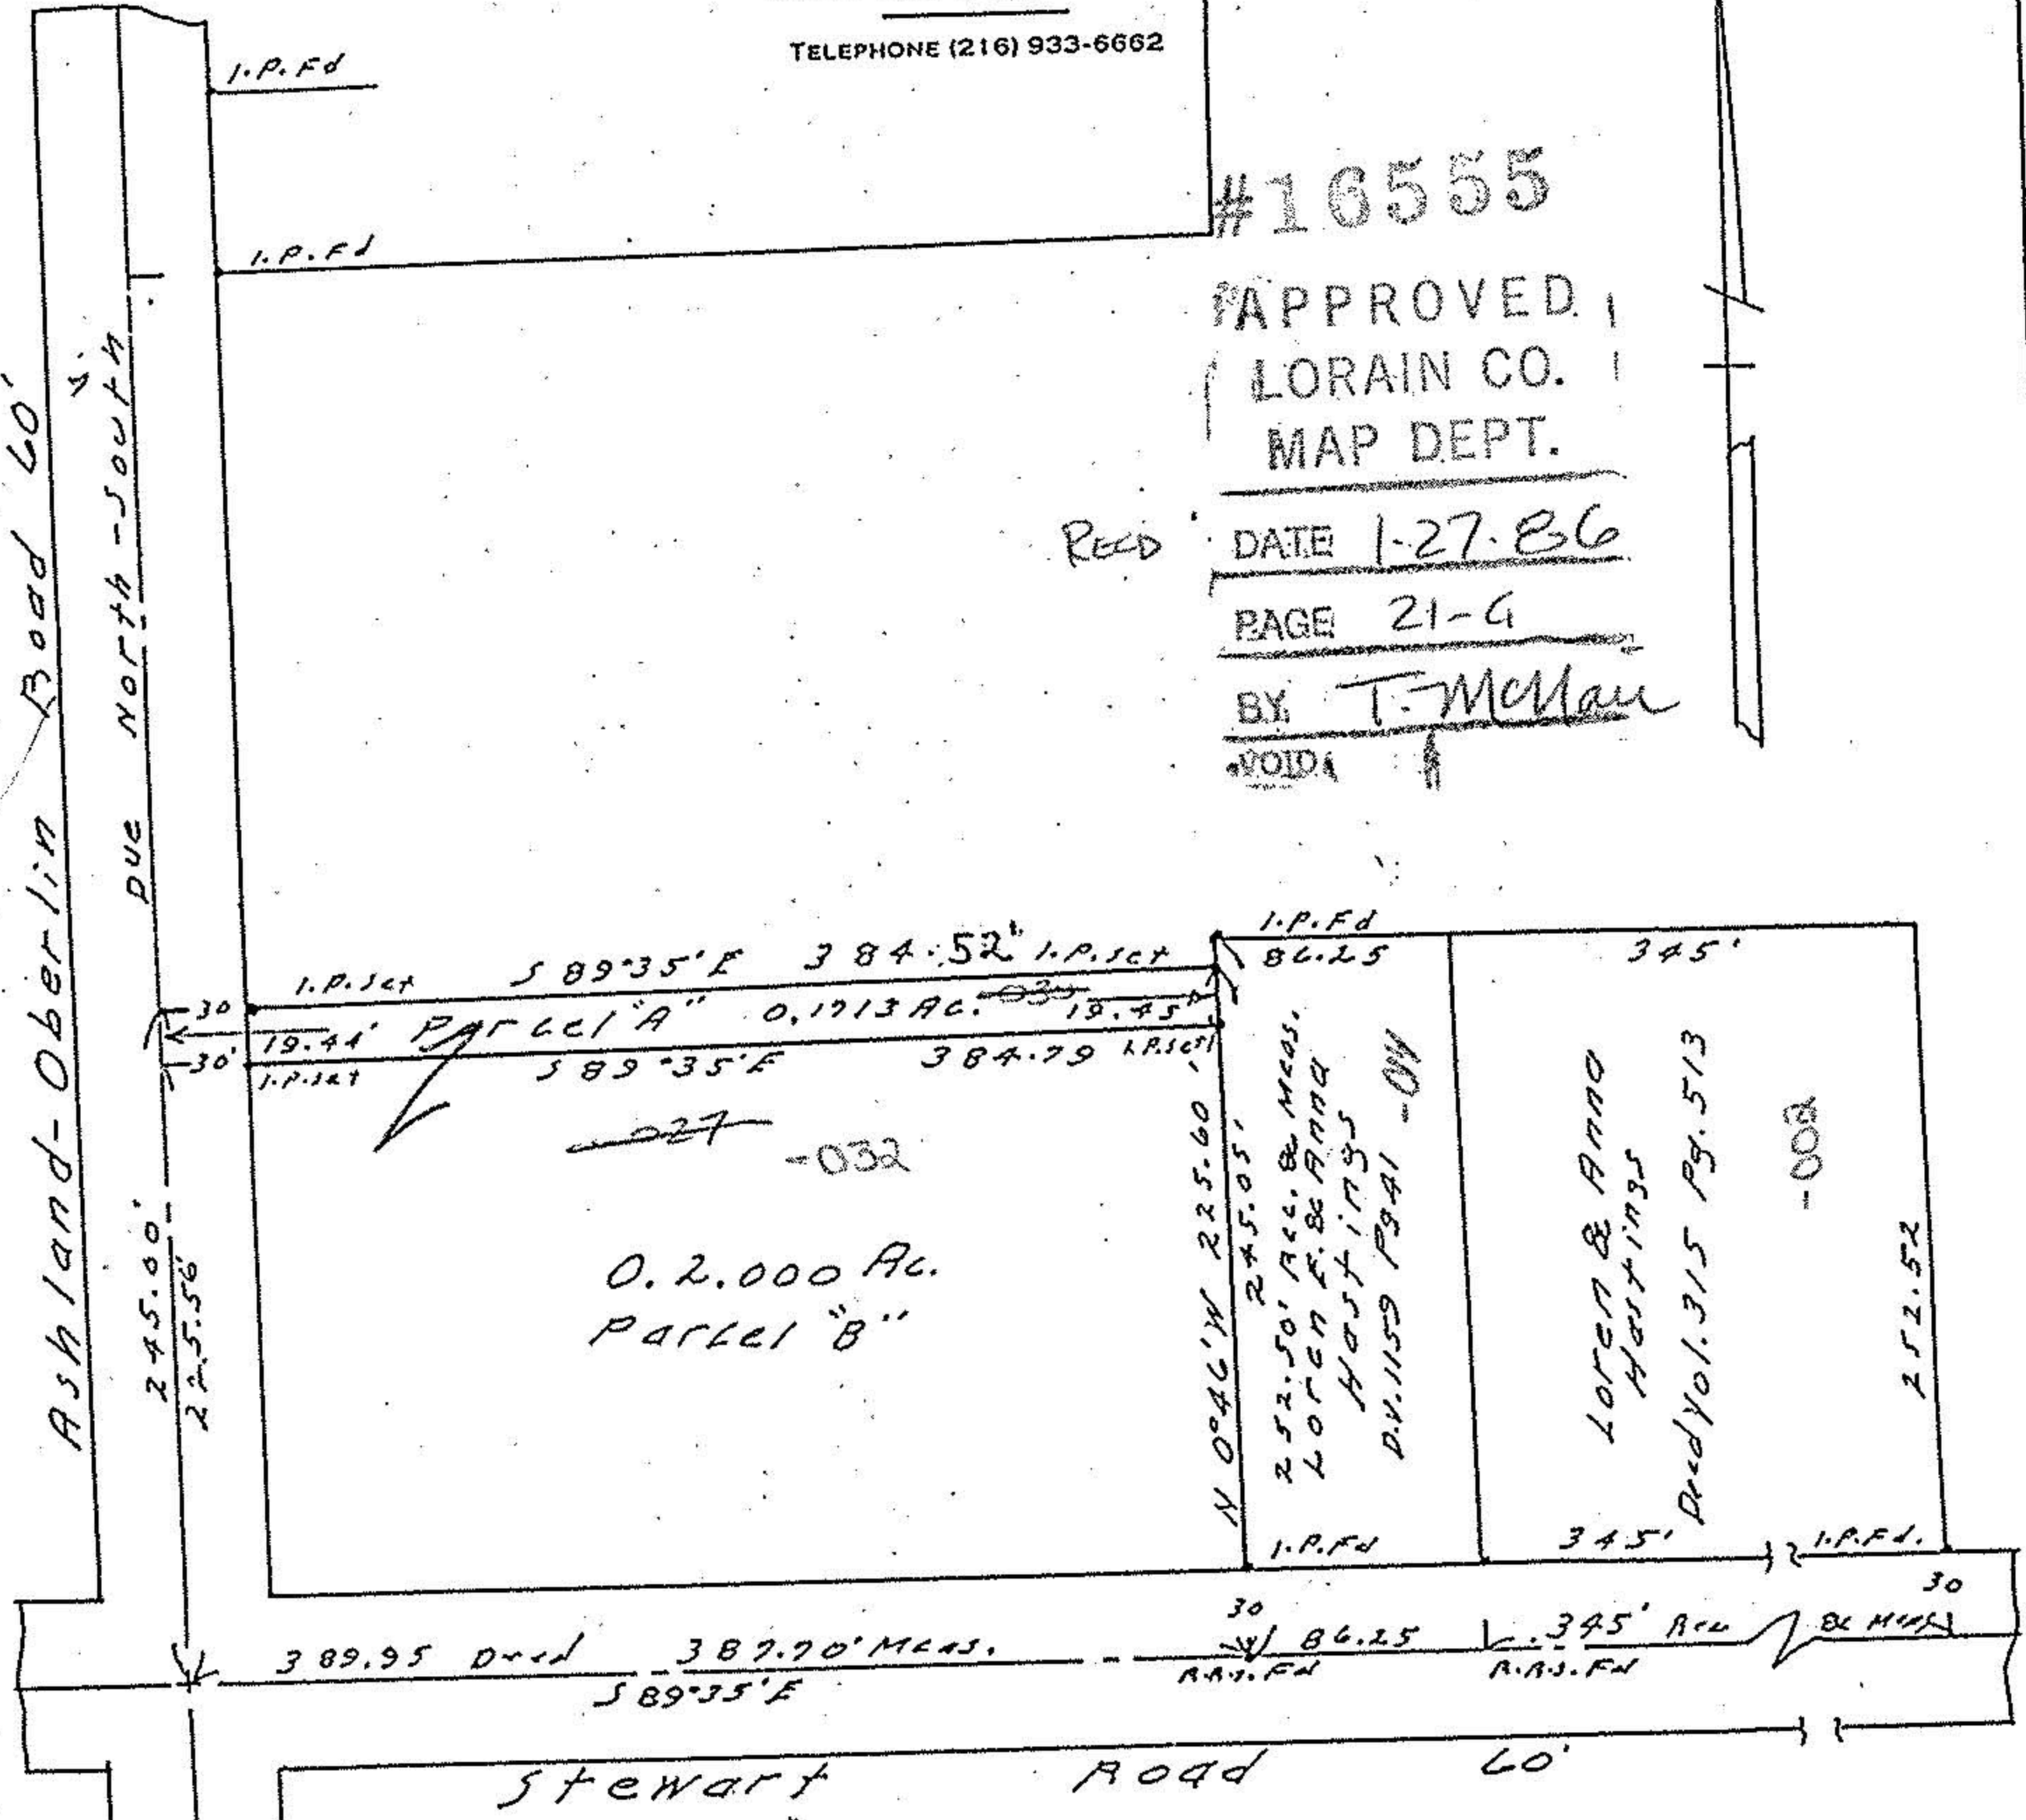 TELEPHONE (216) 933-6662
I.P.Fd
I.P.Fd
#16555
APPROVED
LORAIN CO.
MAP DEPT.
RECD DATE 1-27-86
PAGE 21-G
BY
VOID
Ashland-Oberlin Road 60'
Due North-South
I.P.Fd
86.25
345'
I.P.Set S 89°35'E 384.52' I.P.Set
30
Parcel "A" 0.1713 Ac. 19.45'
19.44'
30'
I.P.Set S 89°35'E 384.79 I.P.Set
027
-032
0.2.000 Ac.
Parcel "B"
245.00'
225.56'
N 0°46'W 225.60'
245.05'
252.50' Rec. & Meas.
Loren F. & Anna
Hastings
D.V.1159 Pg41
Loren & Anna
Hastings
Deed Vol.315 Pg.513
-002
252.52
I.P.Fd
345'
I.P.Fd.
30
30
389.95 Deed 387.70' Meas. 86.25 345' Rec & Meas
S 89°35'E
R.R.S.Fd
R.R.S.Fd
Stewart Road 60'